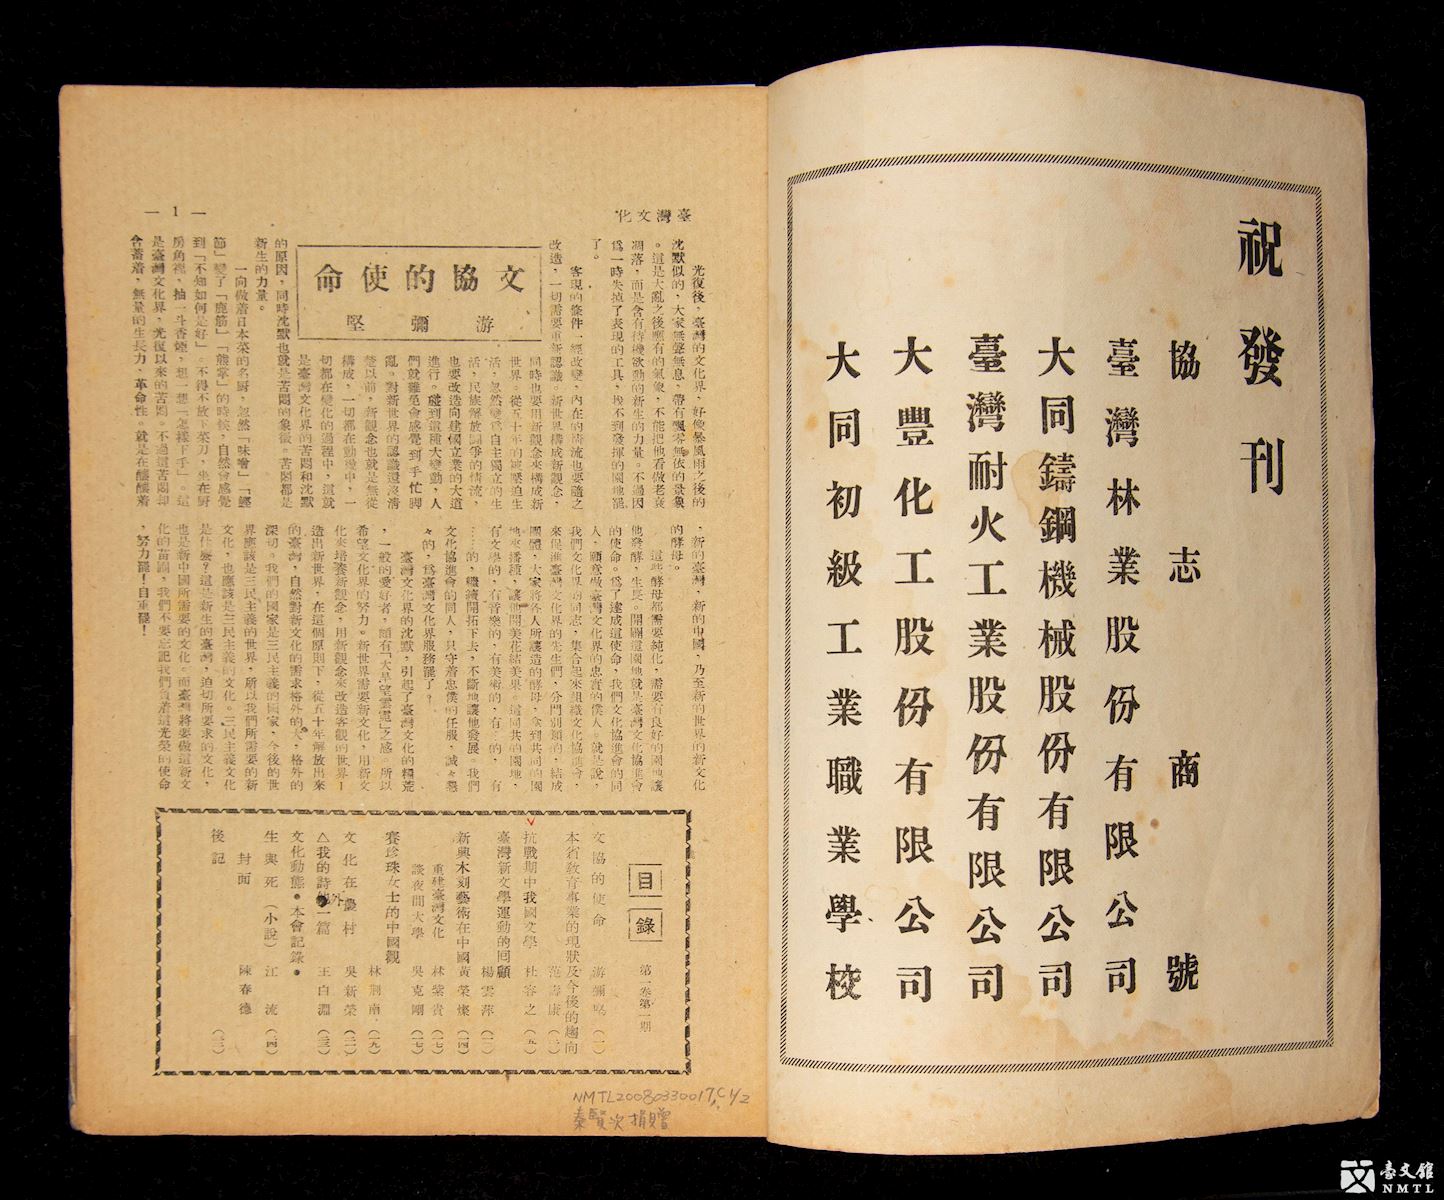 祝發刊
協志商號
臺灣林業股份有限公司
大同鑄鋼機械股份有限公司
臺灣耐火工業股份有限公司
大豐化工股份有限公司
大同初級工業職業學校
臺灣文化
— 1 —
文協的使命
游彌堅
光復後,臺灣的文化界,好像暴風雨之後的
沈默似的,大家無聲無息,帶有飄零無依的景象
。這是大亂之後應有的氣象,不能把他看做老衰
凋落,而是含有待機欲動的新生的力量。不過因
爲一時失掉了表現的工具,找不到發揮的園地罷
了。
客現的條件一經改變,內在的情流也要隨之
改造,一切需要重新認議。新世界構成新觀念,
同時也要用新觀念來構成新
世界。從五十年的被壓迫生
活,忽然變爲自主獨立的生
活,民族解放鬪爭的情流,
也要改造向建國立業的大道
進行。碰到這種大變動,人
們就難免會感覺到手忙脚
亂。對新世界的認識還沒清
楚以前,新觀念也就是無從
構成,一切都在動機中,一
切都在變化的過程中,這就
是臺灣文化界的苦悶和沈默
的原因,同時沈默也就是苦悶的象徵。苦悶都是
新生的力量。
一向做着日本菜的名厨,忽然「味噌」「鰹
節」變了「鹿筋」「熊掌」的時候,自然會感覺
到「不知如何是好」。不得不放下菜刀,坐在厨
房角裡,抽一斗香煙,想一想「怎樣下手」。這
是臺灣文化界,光復以來的苦悶。不過這苦悶却
含蓄着,無量的生長力、革命性。就是在釀釀着
,新的臺灣,新的中國,乃至新的世界的新文化
的酵母。
這些酵母都需要純化,需要有良好的園地讓
他發酵,生長。開闢這園地就是臺灣文化協進會
的使命。爲了達成這使命,我們文化協進會的同
人,願意做臺灣文化界的忠實的僕人。就是說,
我們文化界的同志,集合起來組織文化協進會,
來促進臺灣文化界的先生們,分門別類的,結成
團體,大家將各人所釀造的酵母,拿到共同的園
地來播種,讓他開美花結美果。這同共的園地,
有文學的,有音樂的,有美術的,有…的,有
……的,繼續開拓下去,不斷地讓他發展。我們
文化協進會的同人,只守着忠僕的任服,誠々懇
々的,爲臺灣文化界服務罷了。
臺灣文化界的沈默,引起了臺灣文化的糧荒
,一般的愛好者,頗有「大旱望雲霓」之感。所以
希望文化界的努力。新世界需要新文化,用新文
化來培養新觀念,用新觀念來改造客觀的世界—
造出新世界,在這個原則下,從五十年解放出來
的臺灣,自然對新文化的需求格外的大,格外的
深切。我們的國家是三民主義的國家,今後的世
界應該是三民主義的世界,所以我們所需要的新
文化,也應該是三民主義的文化。三民主義文化
是什麽?這是新生的臺灣,迫切所要求的文化,
也是新中國所需要的文化。而臺灣將要做這新文
化的苗圃,我們不要忘記我們負着這光榮的使命
,努力罷!自重罷!
目錄
第一卷第一期
文協的使命 游彌堅(一)
本省敎育事業的現狀及今後的趨向 范壽康
抗戰期中我國文學 杜容之(五)
臺灣新文學運動的回顧 楊雲萍
新興木刻藝術在中國 黃榮燦(一四)
重建臺灣文化 林紫貴(一七)
談夜間大學 吳克剛(一七)
賽珍珠女士的中國觀 林荆南(一九)
文化在農村 吳新榮
△我的詩 外一篇 王白淵(二三)
文化動態。本會記錄。
生與死(小說) 江流
封面 陳春德
後記
NMTL20080330017,C1/2
秦賢次捐贈
臺文館
NMTL